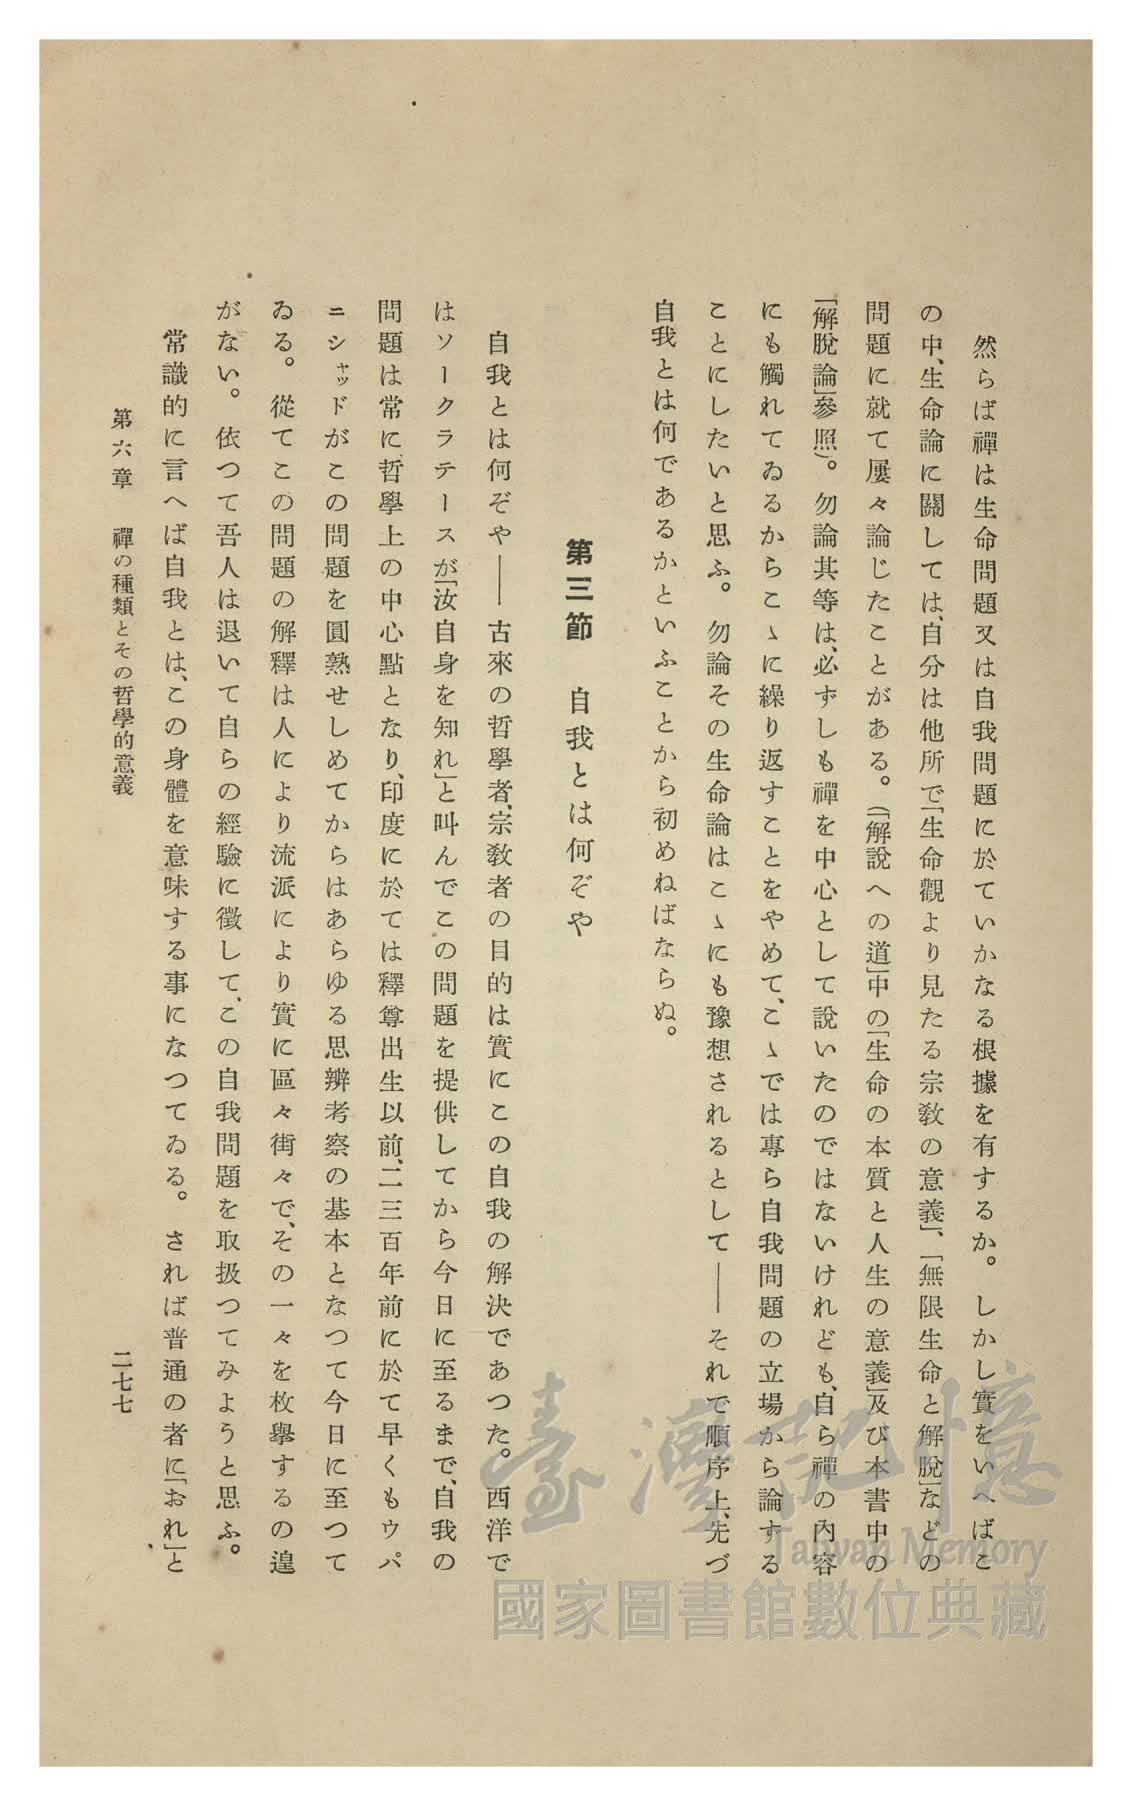 然らば禪は生命問題又は自我問題に於ていかなる根據を有するか。しかし實をいへばこ
の中、生命論に關しては、自分は他所で「生命觀より見たる宗教の意義」、「無限生命と解脫」などの
問題に就て屢々論じたことがある。(「解說への道」中の「生命の本質と人生の意義」及び本書中の
「解脫論」參照)。勿論其等は、必ずしも禪を中心として說いたのではないけれども、自ら禪の內容
にも觸れてゐるからこゝに繰り返すことをやめて、こゝでは專ら自我問題の立場から論する
ことにしたいと思ふ。勿論その生命論はこゝにも豫想されるとして——それで順序上、先づ
自我とは何であるかといふことから初めねばならぬ。
第三節　自我とは何ぞや
自我とは何ぞや——古來の哲學者、宗敎者の目的は實にこの自我の解決であつた。西洋で
はソークラテースが「汝自身を知れ」と叫んでこの問題を提供してから今日に至るまで、自我の
問題は常に哲學上の中心點となり、印度に於ては釋尊出生以前、二三百年前に於て早くもウパ
ニシャッドがこの問題を圓熟せしめてからはあらゆる思辨考察の基本となつて今日に至つて
ゐる。從てこの問題の解釋は人により流派により實に區々街々で、その一々を枚擧するの遑
がない。依つて吾人は退いて自らの經驗に徵して、この自我問題を取扱つてみようと思ふ。
常識的に言へば自我とは、この身體を意味する事になつてゐる。されば普通の者に「おれ」と
第六章　禪の種類とその哲學的意義　二七七
臺灣記憶
Taiwan Memory
國家圖書館數位典藏